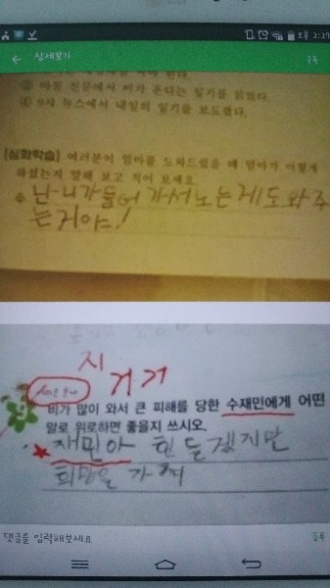 오후 2:29
상세보기
등록
③ 아침 신문에서 비가 온다는 일기를 읽었다.
④ 9시 뉴스에서 내일의 일기를 보도했다.
[심화학습] 여러분이 엄마를 도와드렸을 때 엄마가 어떻게
하셨는지 말해 보고 적어 보세요.
넌 니가 들어가서 노는게 도와주
는거야!
지
거거
비가 많이 와서 큰 피해를 당한 수재민에게 어떤
말로 위로하면 좋을지 쓰시오.
재민아 힌들겠지만
희망을 가져
댓글을 입력해보세요
등록